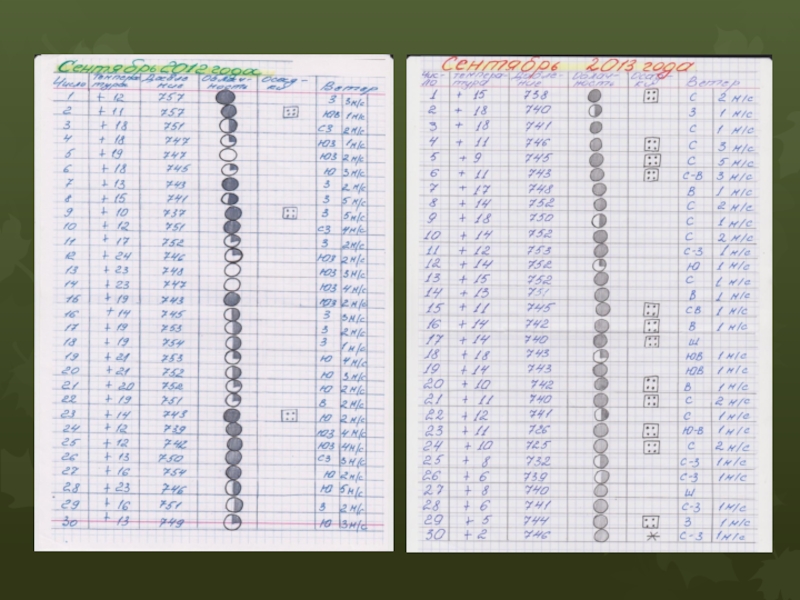 Сентябрь 2012 года
Число Темпера- Давле- Облач- Осад- Ветер
тура ние ность ки
1 +12 757 З 3 м/с
2 +11 757 ЮВ 1 м/с
3 +18 751 СЗ 2 м/с
4 +18 747 ЮЗ 1 м/с
5 +19 747 ЮЗ 2 м/с
6 +18 745 Ю 3 м/с
7 +13 743 З 2 м/с
8 +15 741 З 5 м/с
9 +10 737 З 5 м/с
10 +12 751 СЗ 4 м/с
11 +17 752 З 2 м/с
12 +24 746 ЮЗ 2 м/с
13 +23 748 ЮЗ 3 м/с
14 +23 747 ЮЗ 4 м/с
15 +19 743 ЮЗ 2 м/с
16 +14 745 З 3 м/с
17 +19 753 З 2 м/с
18 +19 754 З 1 м/с
19 +21 753 Ю 4 м/с
20 +21 752 Ю 3 м/с
21 +20 752 Ю 2 м/с
22 +19 751 В 2 м/с
23 +14 743 Ю 2 м/с
24 +12 739 ЮЗ 4 м/с
25 +12 742 ЮЗ 4 м/с
26 +13 750 СЗ 3 м/с
27 +16 754 Ю 2 м/с
28 +23 746 Ю 5 м/с
29 +16 751 З 2 м/с
30 +13 749 Ю 3 м/с
Сентябрь 2013 года
Чис- Темпера- Давле- Облач- Осад- Ветер
ло тура ние ность ки
1 +15 738 С 2 м/с
2 +18 740 З 1 м/с
3 +18 741 С 1 м/с
4 +11 746 С 3 м/с
5 +9 745 С 5 м/с
6 +11 743 С-В 3 м/с
7 +17 748 В 1 м/с
8 +14 752 С 2 м/с
9 +18 750 С 1 м/с
10 +14 752 С 2 м/с
11 +12 753 С-З 1 м/с
12 +14 752 Ю 1 м/с
13 +15 752 С 1 м/с
14 +13 751 В 1 м/с
15 +11 745 СВ 1 м/с
16 +14 742 В 1 м/с
17 +14 740 Ш
18 +18 743 ЮВ 1 м/с
19 +14 743 ЮВ 1 м/с
20 +10 742 В 1 м/с
21 +11 740 С 2 м/с
22 +12 741 С 1 м/с
23 +11 726 Ю-В 1 м/с
24 +10 725 С 2 м/с
25 +8 732 С-З 1 м/с
26 +6 739 С-З 1 м/с
27 +8 740 Ш
28 +6 741 С-З 1 м/с
29 +5 744 З 1 м/с
30 +2 746 С-З 1 м/с